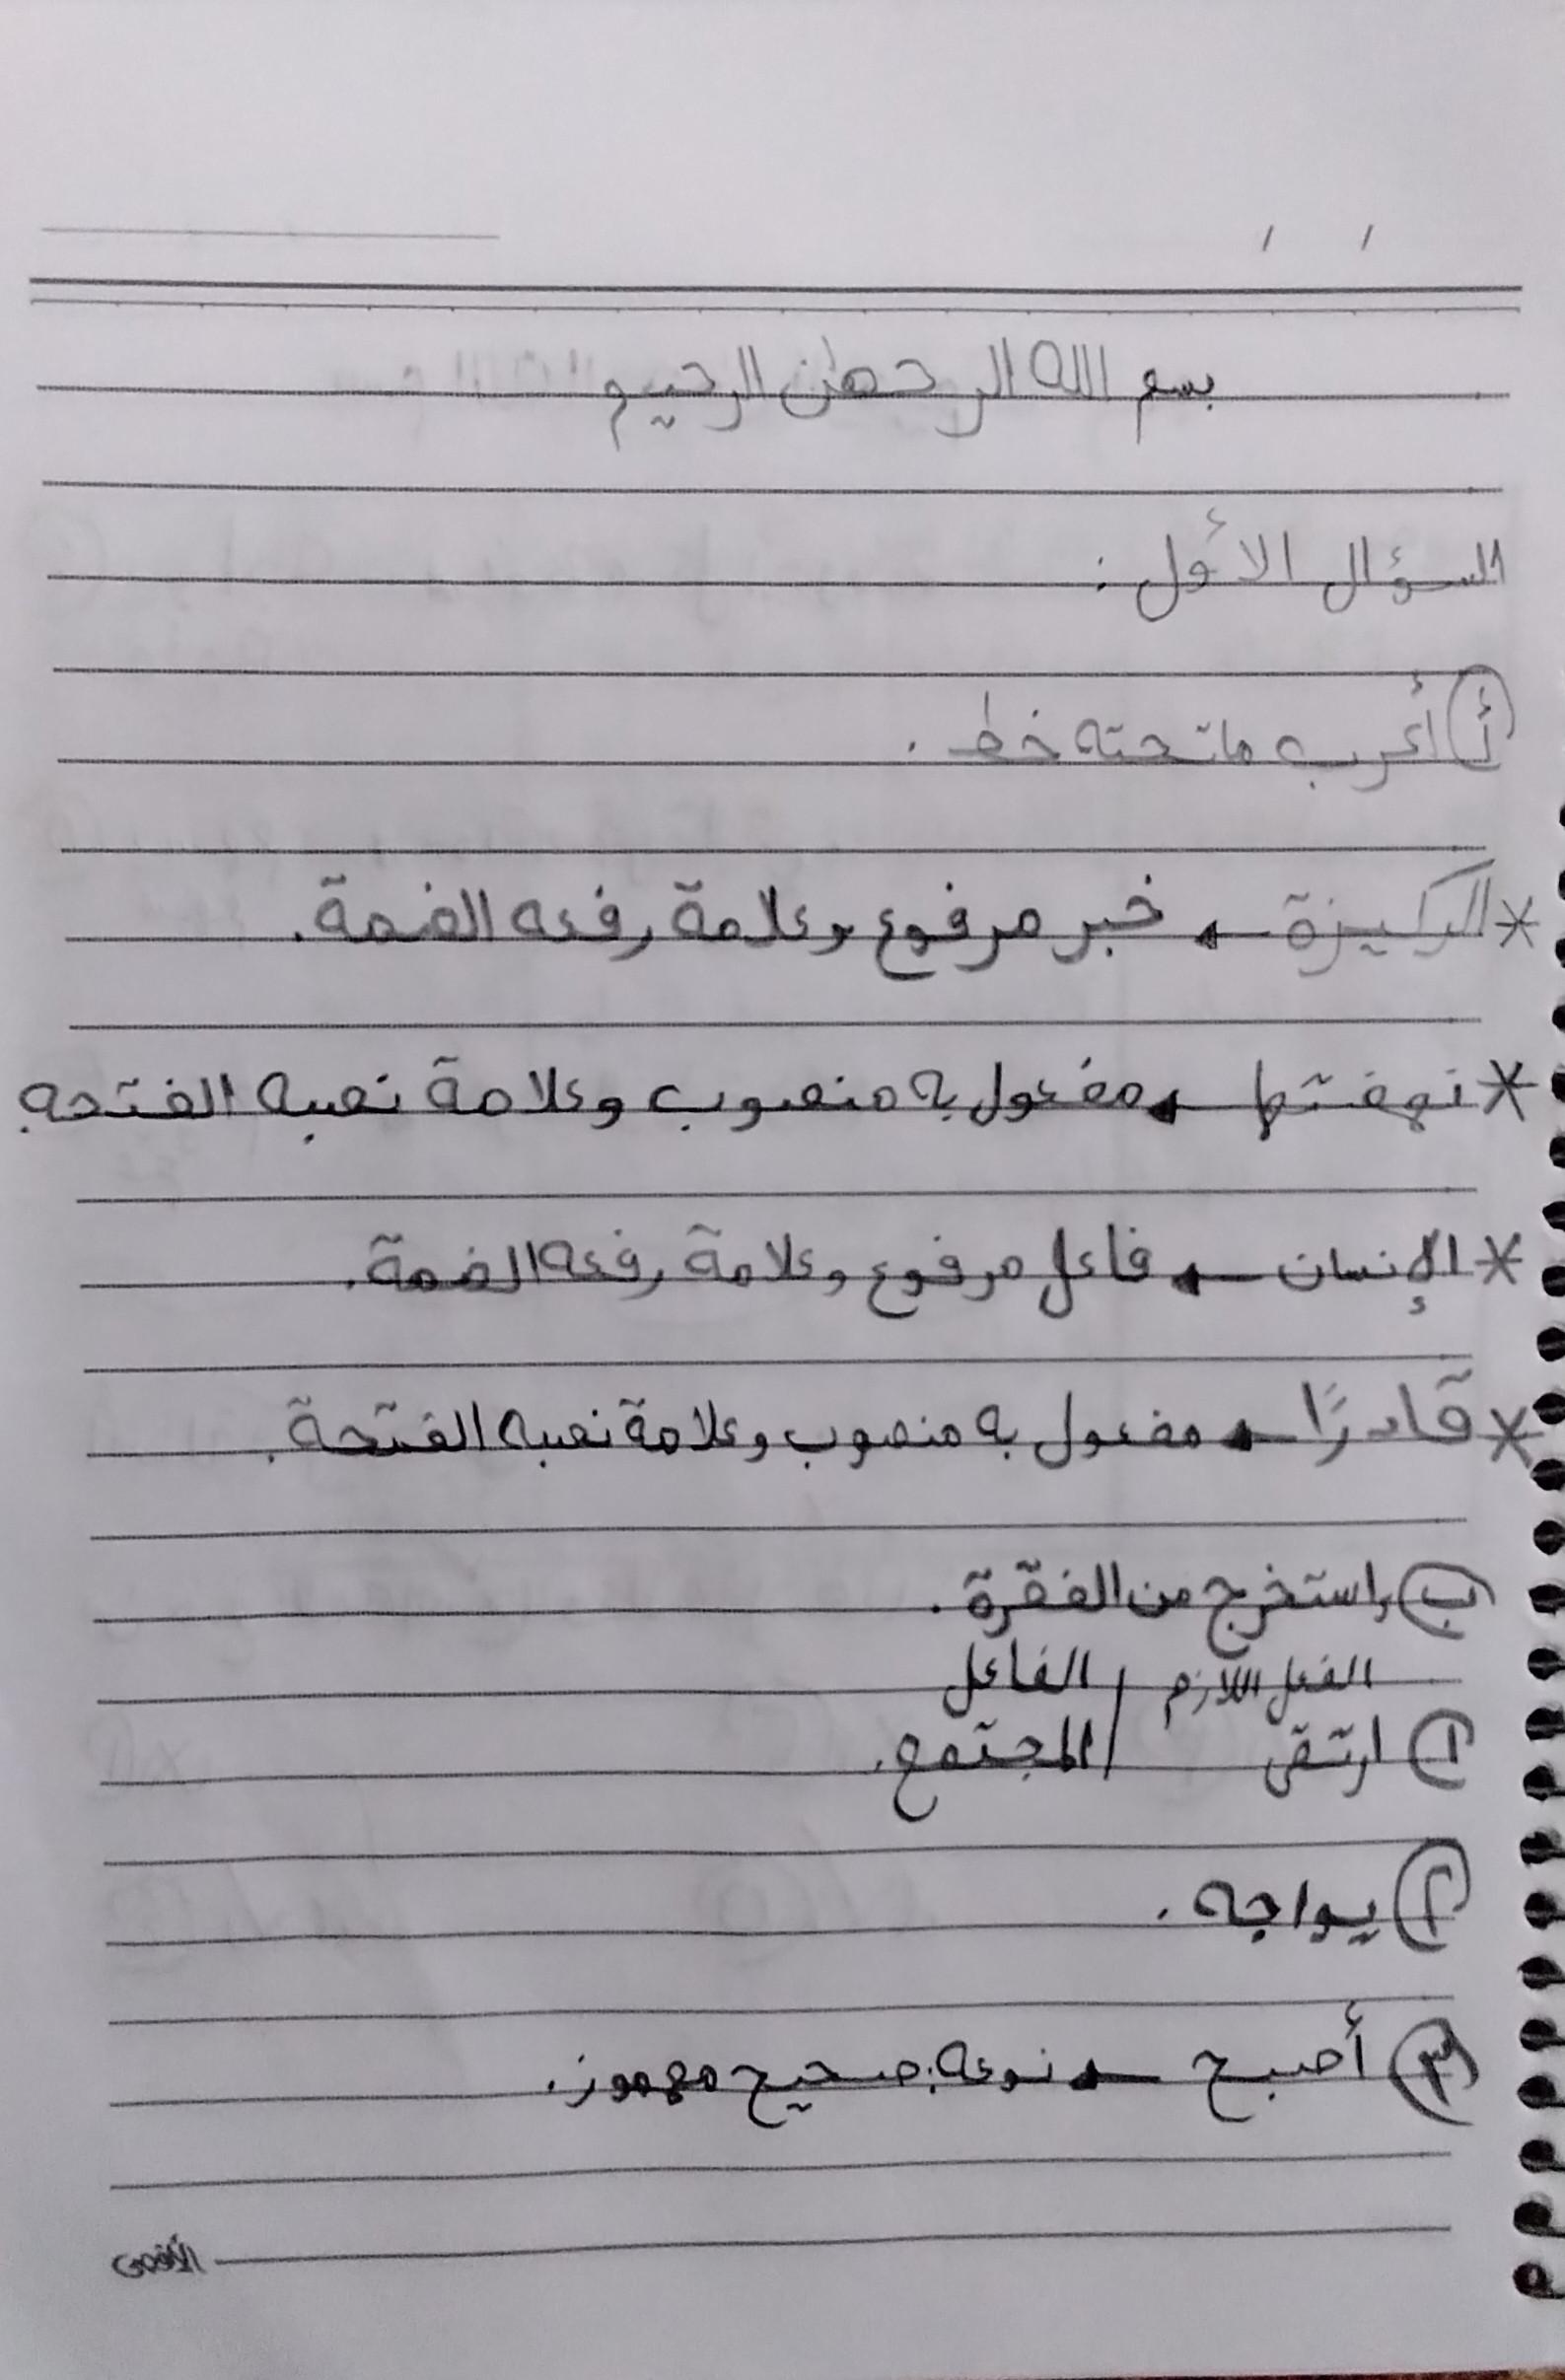 بسم الله الرحمن الرحيم
السؤال الأول :
أ أعرب ما تحته خط .
* الركيزة ← خبر مرفوع وعلامة رفعه الضمة.
* نهضتها ← مفعول به منصوب وعلامة نصبه الفتحه.
* الإنسان ← فاعل مرفوع وعلامة رفعه الضمة.
* قادرًا ← مفعول به منصوب وعلامة نصبه الفتحة.
ب استخرج من الفقرة .
الفعل اللازم / الفاعل
١ ارتقى / المجتمع.
٢ يواجه .
٣ أصبح ← نوعه: صحيح مهموز.
الأقصى